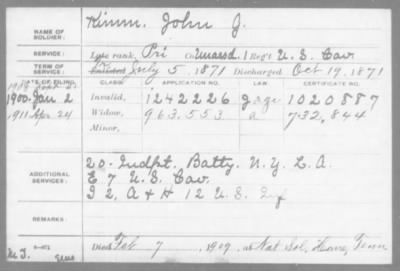 NAME OF SOLDIER: Kimm. John J.
SERVICE: Late rank, Pri Co unassd. 1 Reg't U.S. Cav.
TERM OF SERVICE: Enlisted July 5, 1871 Discharged Oct 19, 1871
DATE OF FILING. CLASS. APPLICATION NO. LAW. CERTIFICATE NO.
1900 Jan 2 Invalid, 1242226 1020887
1911 Apr 24 Widow, 963.553 a 732,844
Minor,
ADDITIONAL SERVICES:
20. Indpt. Batty. N.Y. L.A.
E 7 U.S. Cav.
I 2, A & H 12 U.S. Inf
REMARKS:
Died Feb 7, 1909, at Nat Sol. Home, Tenn